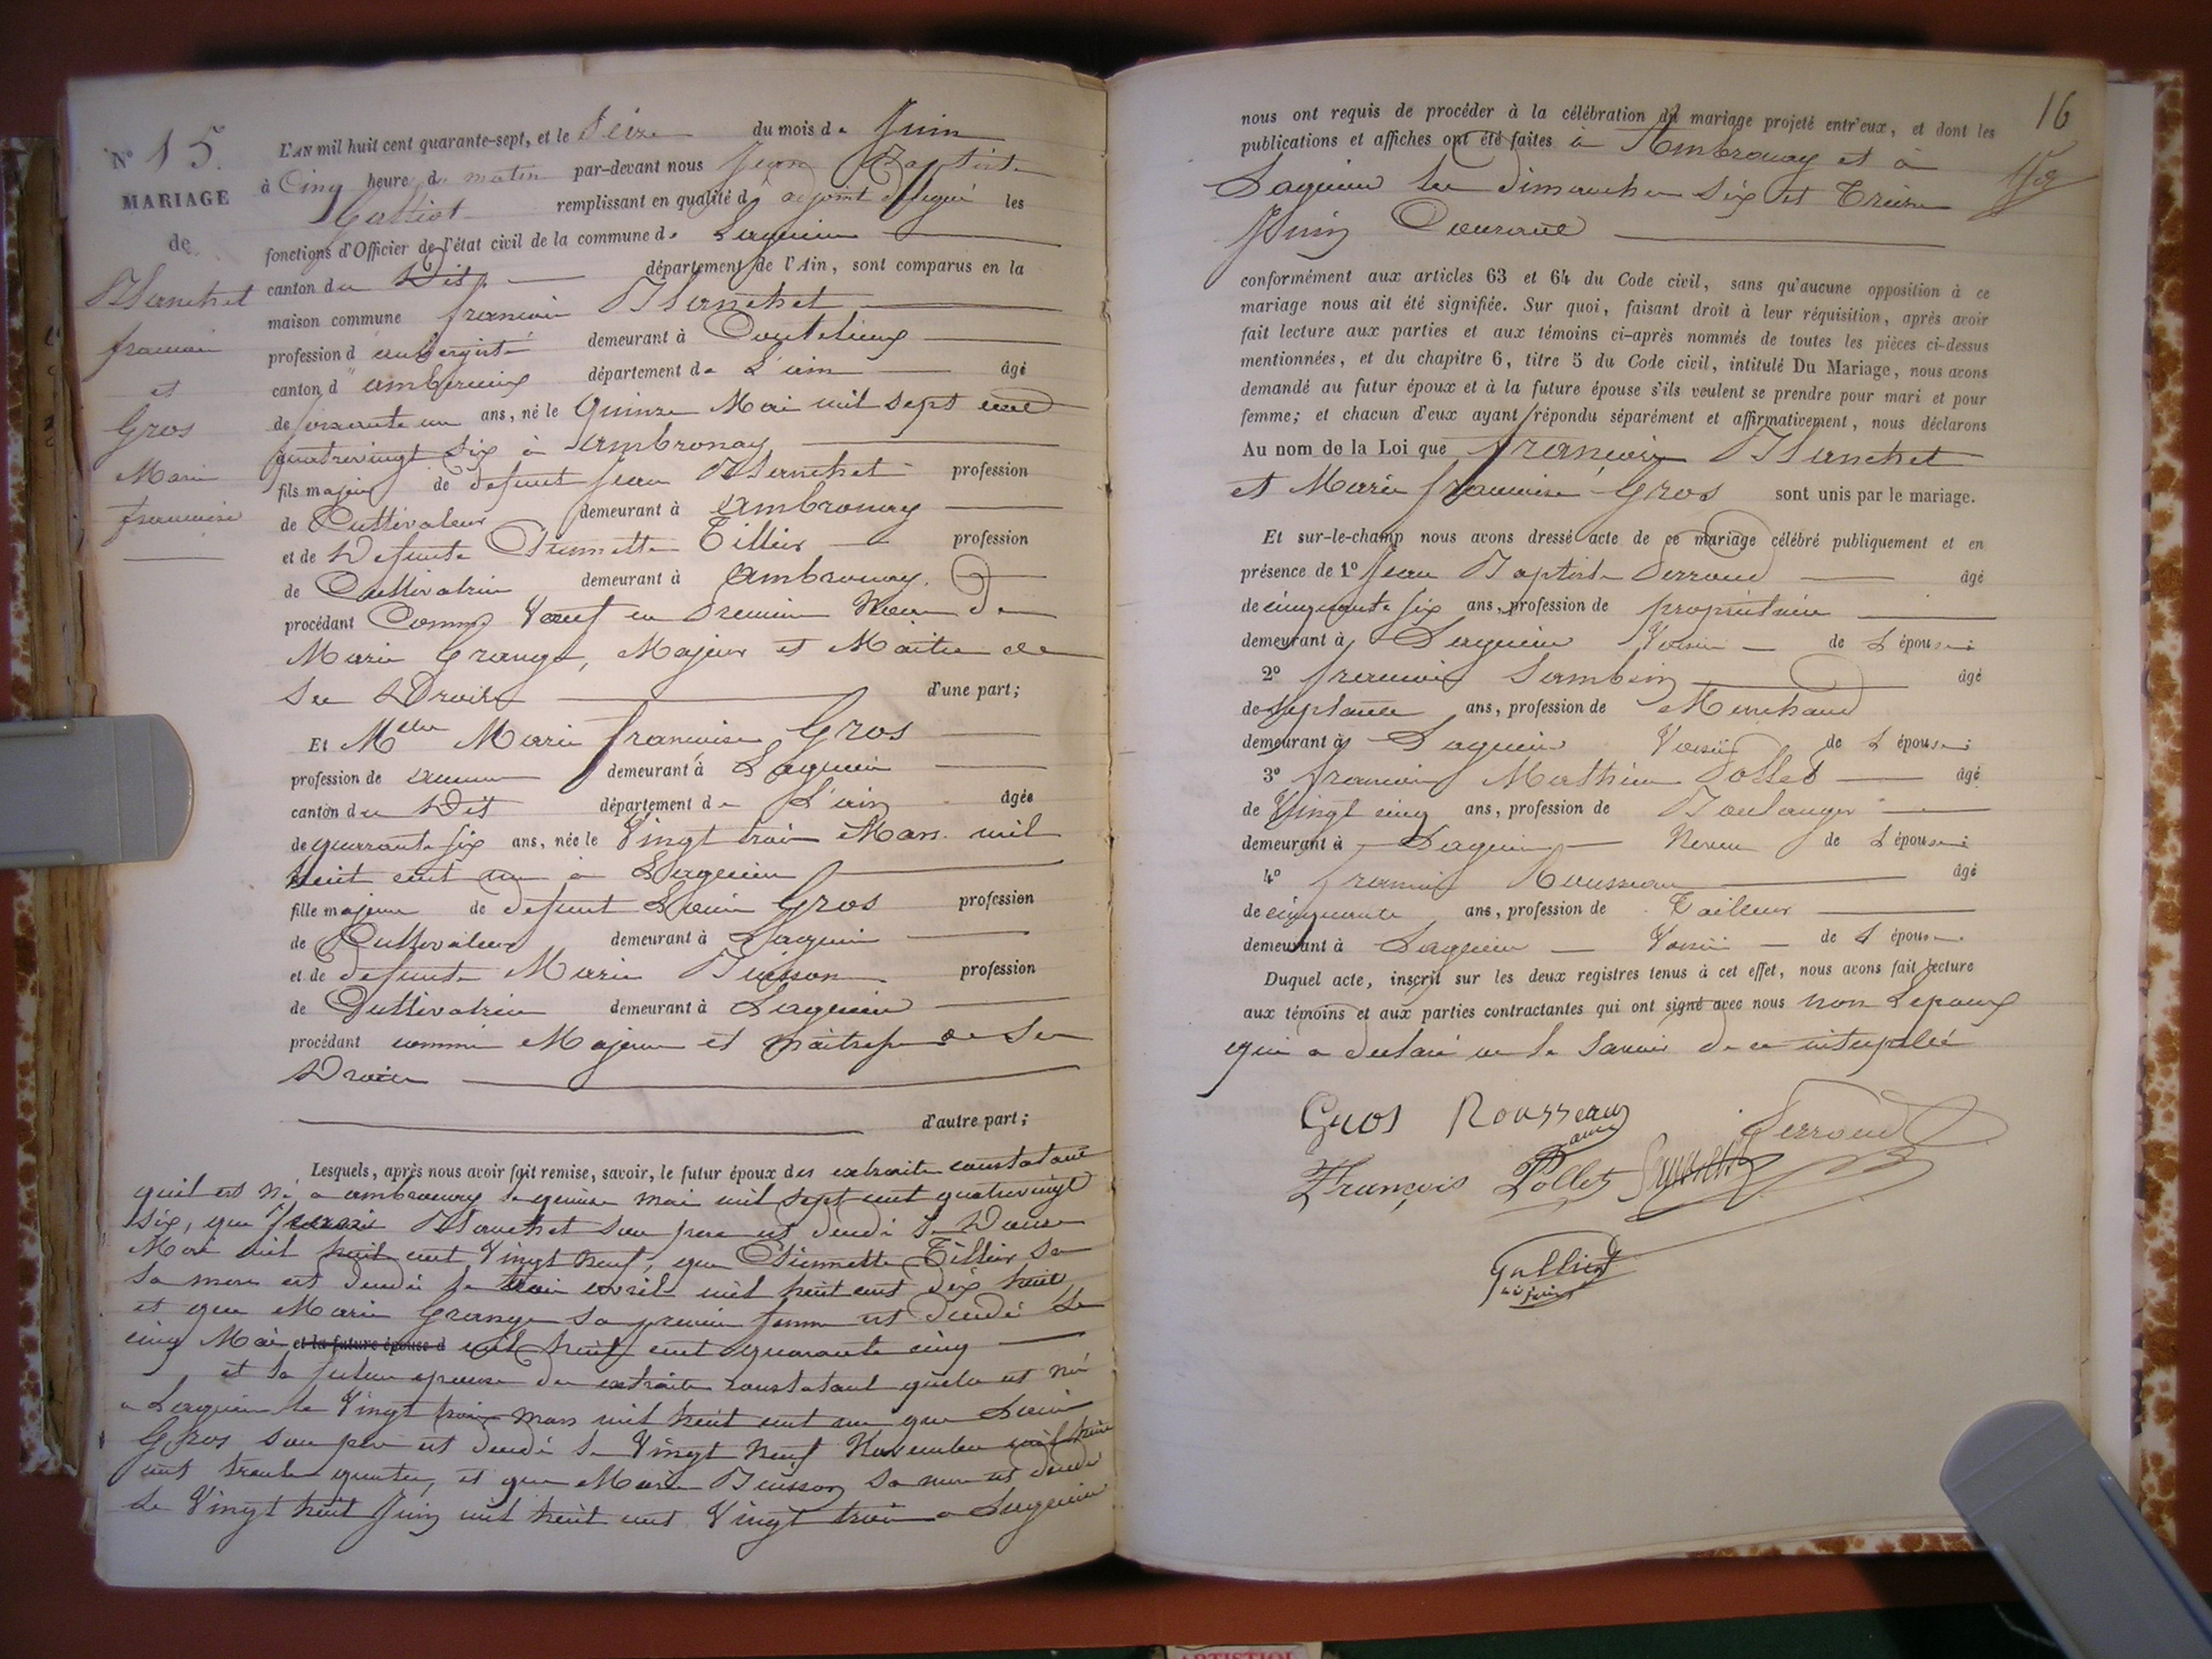 N° 15.
MARIAGE
de
Blanchet
francois
et
Gros
Marie
francoise
L'AN mil huit cent quarante-sept, et le Seize du mois de Juin
à Cinq heure du matin par-devant nous Jean Baptiste
remplissant en qualité d'adjoint délégué les
fonctions d'Officier de l'état civil de la commune de Lagnieu
canton du Dit département de l'Ain, sont comparus en la
maison commune francois Blanchet
profession d'aubergiste demeurant à
canton d'amberieux département de L'ain âgé
de soixante un ans, né le Quinze Mai mil sept cent
quatrevingt Six à ambronay
fils majeur de defunt Jean Blanchet profession
de Cultivateur demeurant à ambronay
et de Defunte Etiennette Tillier profession
de Cultivatrice demeurant à ambronay.
procédant Comme Veuf en Premier Noce De
Marie Grange, Majeur et Maitre de
Ses Droits d'une part;
Et Melle Marie francoise Gros
profession de aucune demeurant à Lagnieu
canton du Dit département de L'ain âgée
de quarante six ans, née le Vingt trois Mars mil
huit cent un à Lagnieu
fille majeure de defunt Louis Gros profession
de Cultivateur demeurant à Lagnieu
et de defunte Marie Buisson profession
de Cultivatrice demeurant à Lagnieu
procédant comme Majeure et maitresse de Ses
Droits
d'autre part;
Lesquels, après nous avoir fait remise, savoir, le futur époux des extraits constatant
quil est né a ambronay le quinze mai mil sept cent quatrevingt
Six, que Blanchet son pere est decedé le Douze
Mai mil huit cent Vingt Neuf, que Etiennette Tillier Sa
Sa mere est decedé le trois avril mil huit cent dix huit
et que Marie Grange sa premier femme est decedé le
cinq Mai et la future épouse d mil huit cent quarante cinq
et la future epouse des extraits constatant quelle est né
a Lagnieu le Vingt trois mars mil huit cent un que Louis
Gros son pere est decedé le Vingt Neuf Novembre mil huit
cent trente quatre, et que Marie Buisson sa mere est decedé
le Vingt huit Juin mil huit cent Vingt trois a Lagnieu
16
nous ont requis de procéder à la célébration du mariage projeté entr'eux, et dont les
publications et affiches ont été faites à Ambronay et à
Lagnieu les Dimanches Six et Treize
Juin Courant
conformément aux articles 63 et 64 du Code civil, sans qu'aucune opposition à ce
mariage nous ait été signifiée. Sur quoi, faisant droit à leur réquisition, après avoir
fait lecture aux parties et aux témoins ci-après nommés de toutes les pièces ci-dessus
mentionnées, et du chapitre 6, titre 5 du Code civil, intitulé Du Mariage, nous avons
demandé au futur époux et à la future épouse s'ils veulent se prendre pour mari et pour
femme; et chacun d'eux ayant répondu séparément et affirmativement, nous déclarons
Au nom de la Loi que françois Blanchet
et Marie francoise Gros sont unis par le mariage.
Et sur-le-champ nous avons dressé acte de ce mariage célébré publiquement et en
présence de 1° Jean Baptiste Perroud âgé
de cinquante six ans, profession de propriétaire
demeurant à Lagnieu Voisin de L'épouse;
2° francois âgé
de Septante ans, profession de Marchand
demeurant à Lagnieu Voisin de L'épouse;
3° francois Mathieu Pollet âgé
de Vingt cinq ans, profession de Boulanger
demeurant à Lagnieu Neveu de L'épouse;
4° francois Rousseau âgé
de cinquante ans, profession de Tailleur
demeurant à Lagnieu Voisin de L'épouse.
Duquel acte, inscrit sur les deux registres tenus à cet effet, nous avons fait lecture
aux témoins et aux parties contractantes qui ont signé avec nous non Lepoux
qui a declaré ne le Savoir de ce interpelé
Gros Rousseau Perroud
François Pollet